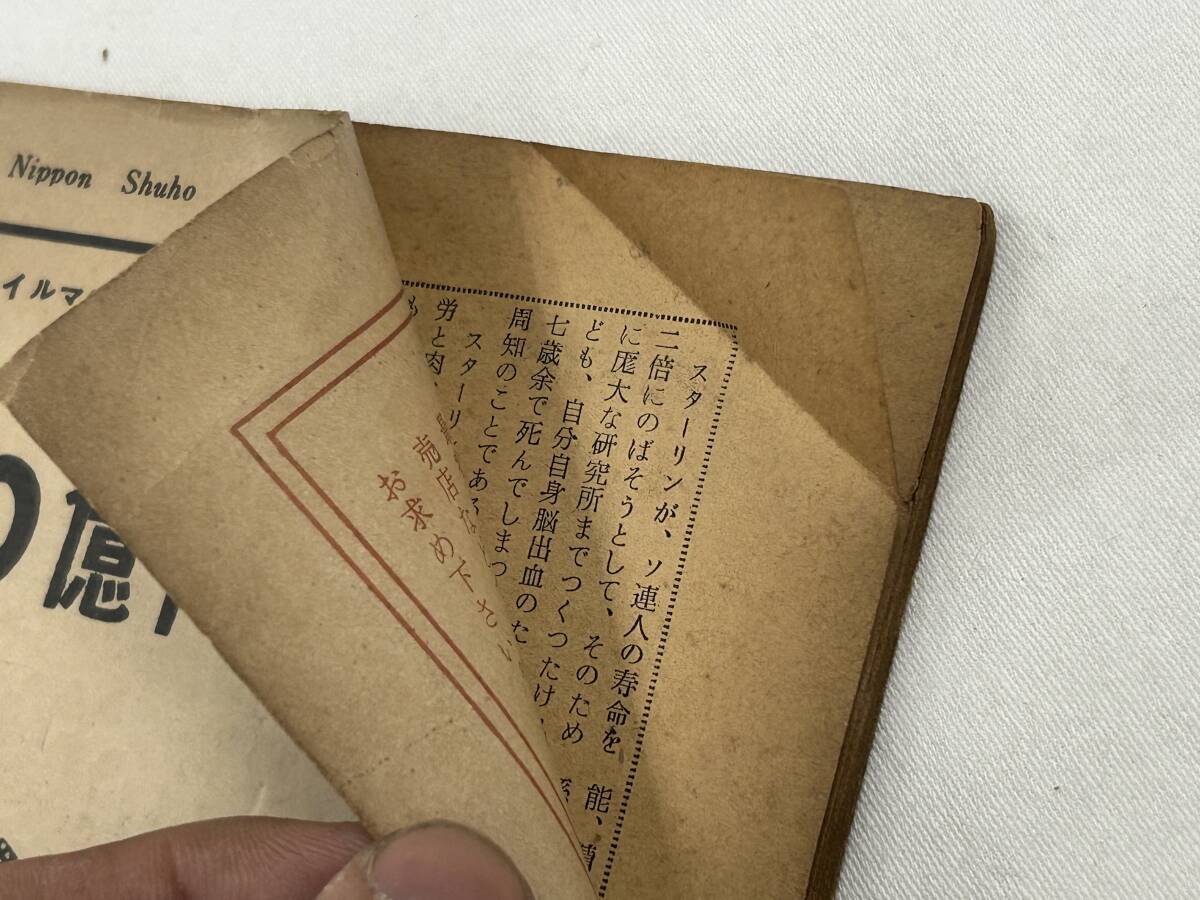 Nippon Shuho
イルマ
億
スターリンが、ソ連人の寿命を
二倍にのばそうとして、そのため
に厖大な研究所までつくつたけ
ども、自分自身脳出血のた
七歳余で死んでしまつ
周知のことであ
スターリ
労と肉
も
能、
売店な
お求め下さい